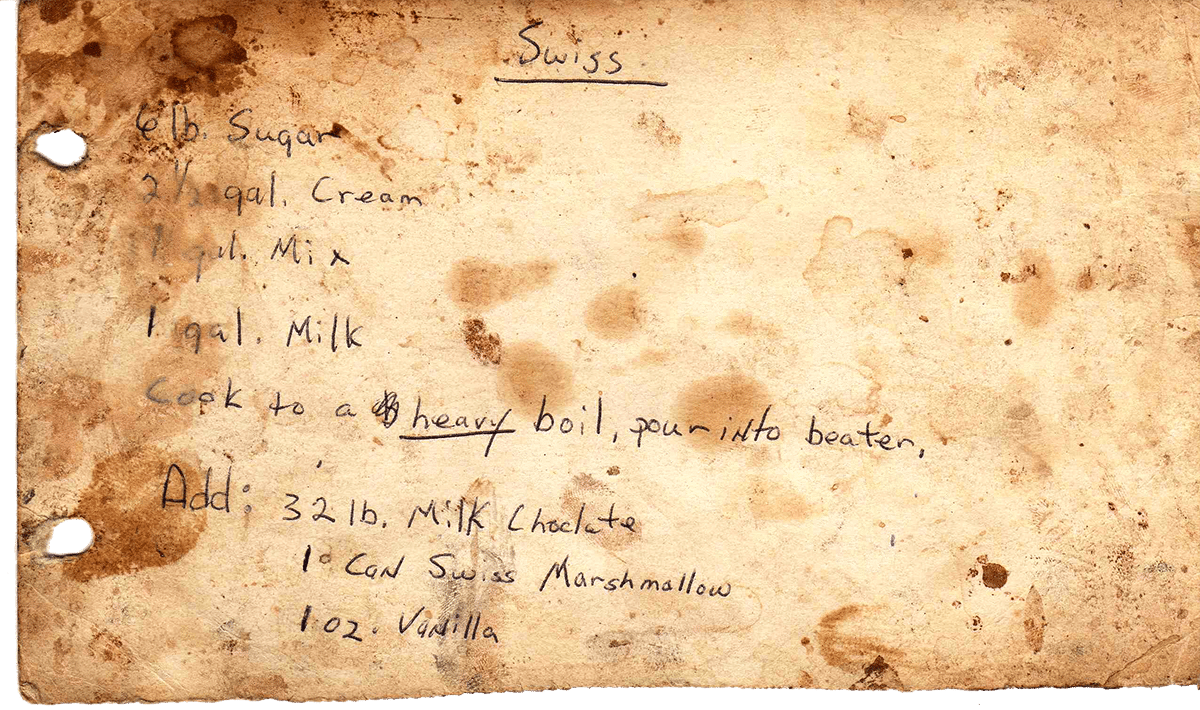 Swiss
6 lb. Sugar
2 1/2 gal. Cream
gal. Mix
1 gal. Milk
Cook to a heavy boil, pour into beater.
Add: 32 lb. Milk Choclate
1 Can Swiss Marshmallow
1 oz. Vanilla